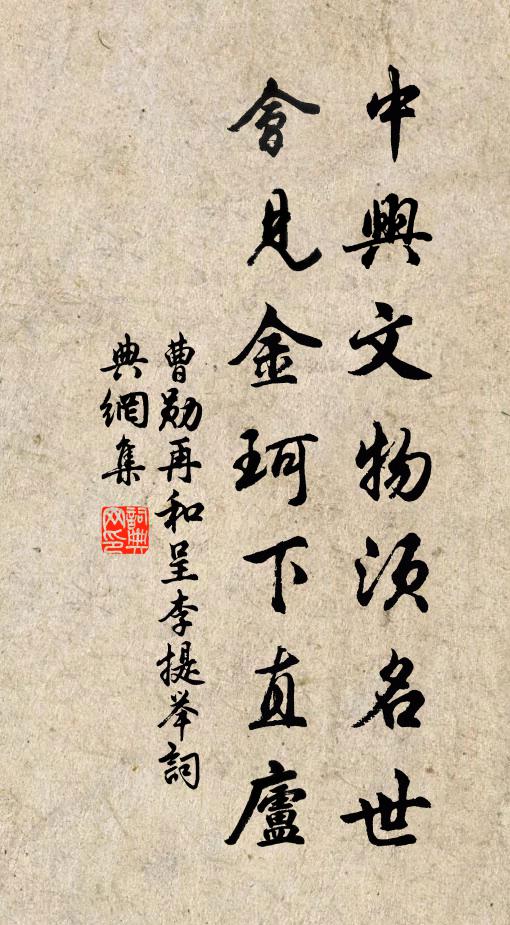 中興文物須名世
會見金珂下直廬
曹勛再和呈李提举詞
典網集
詞典网印